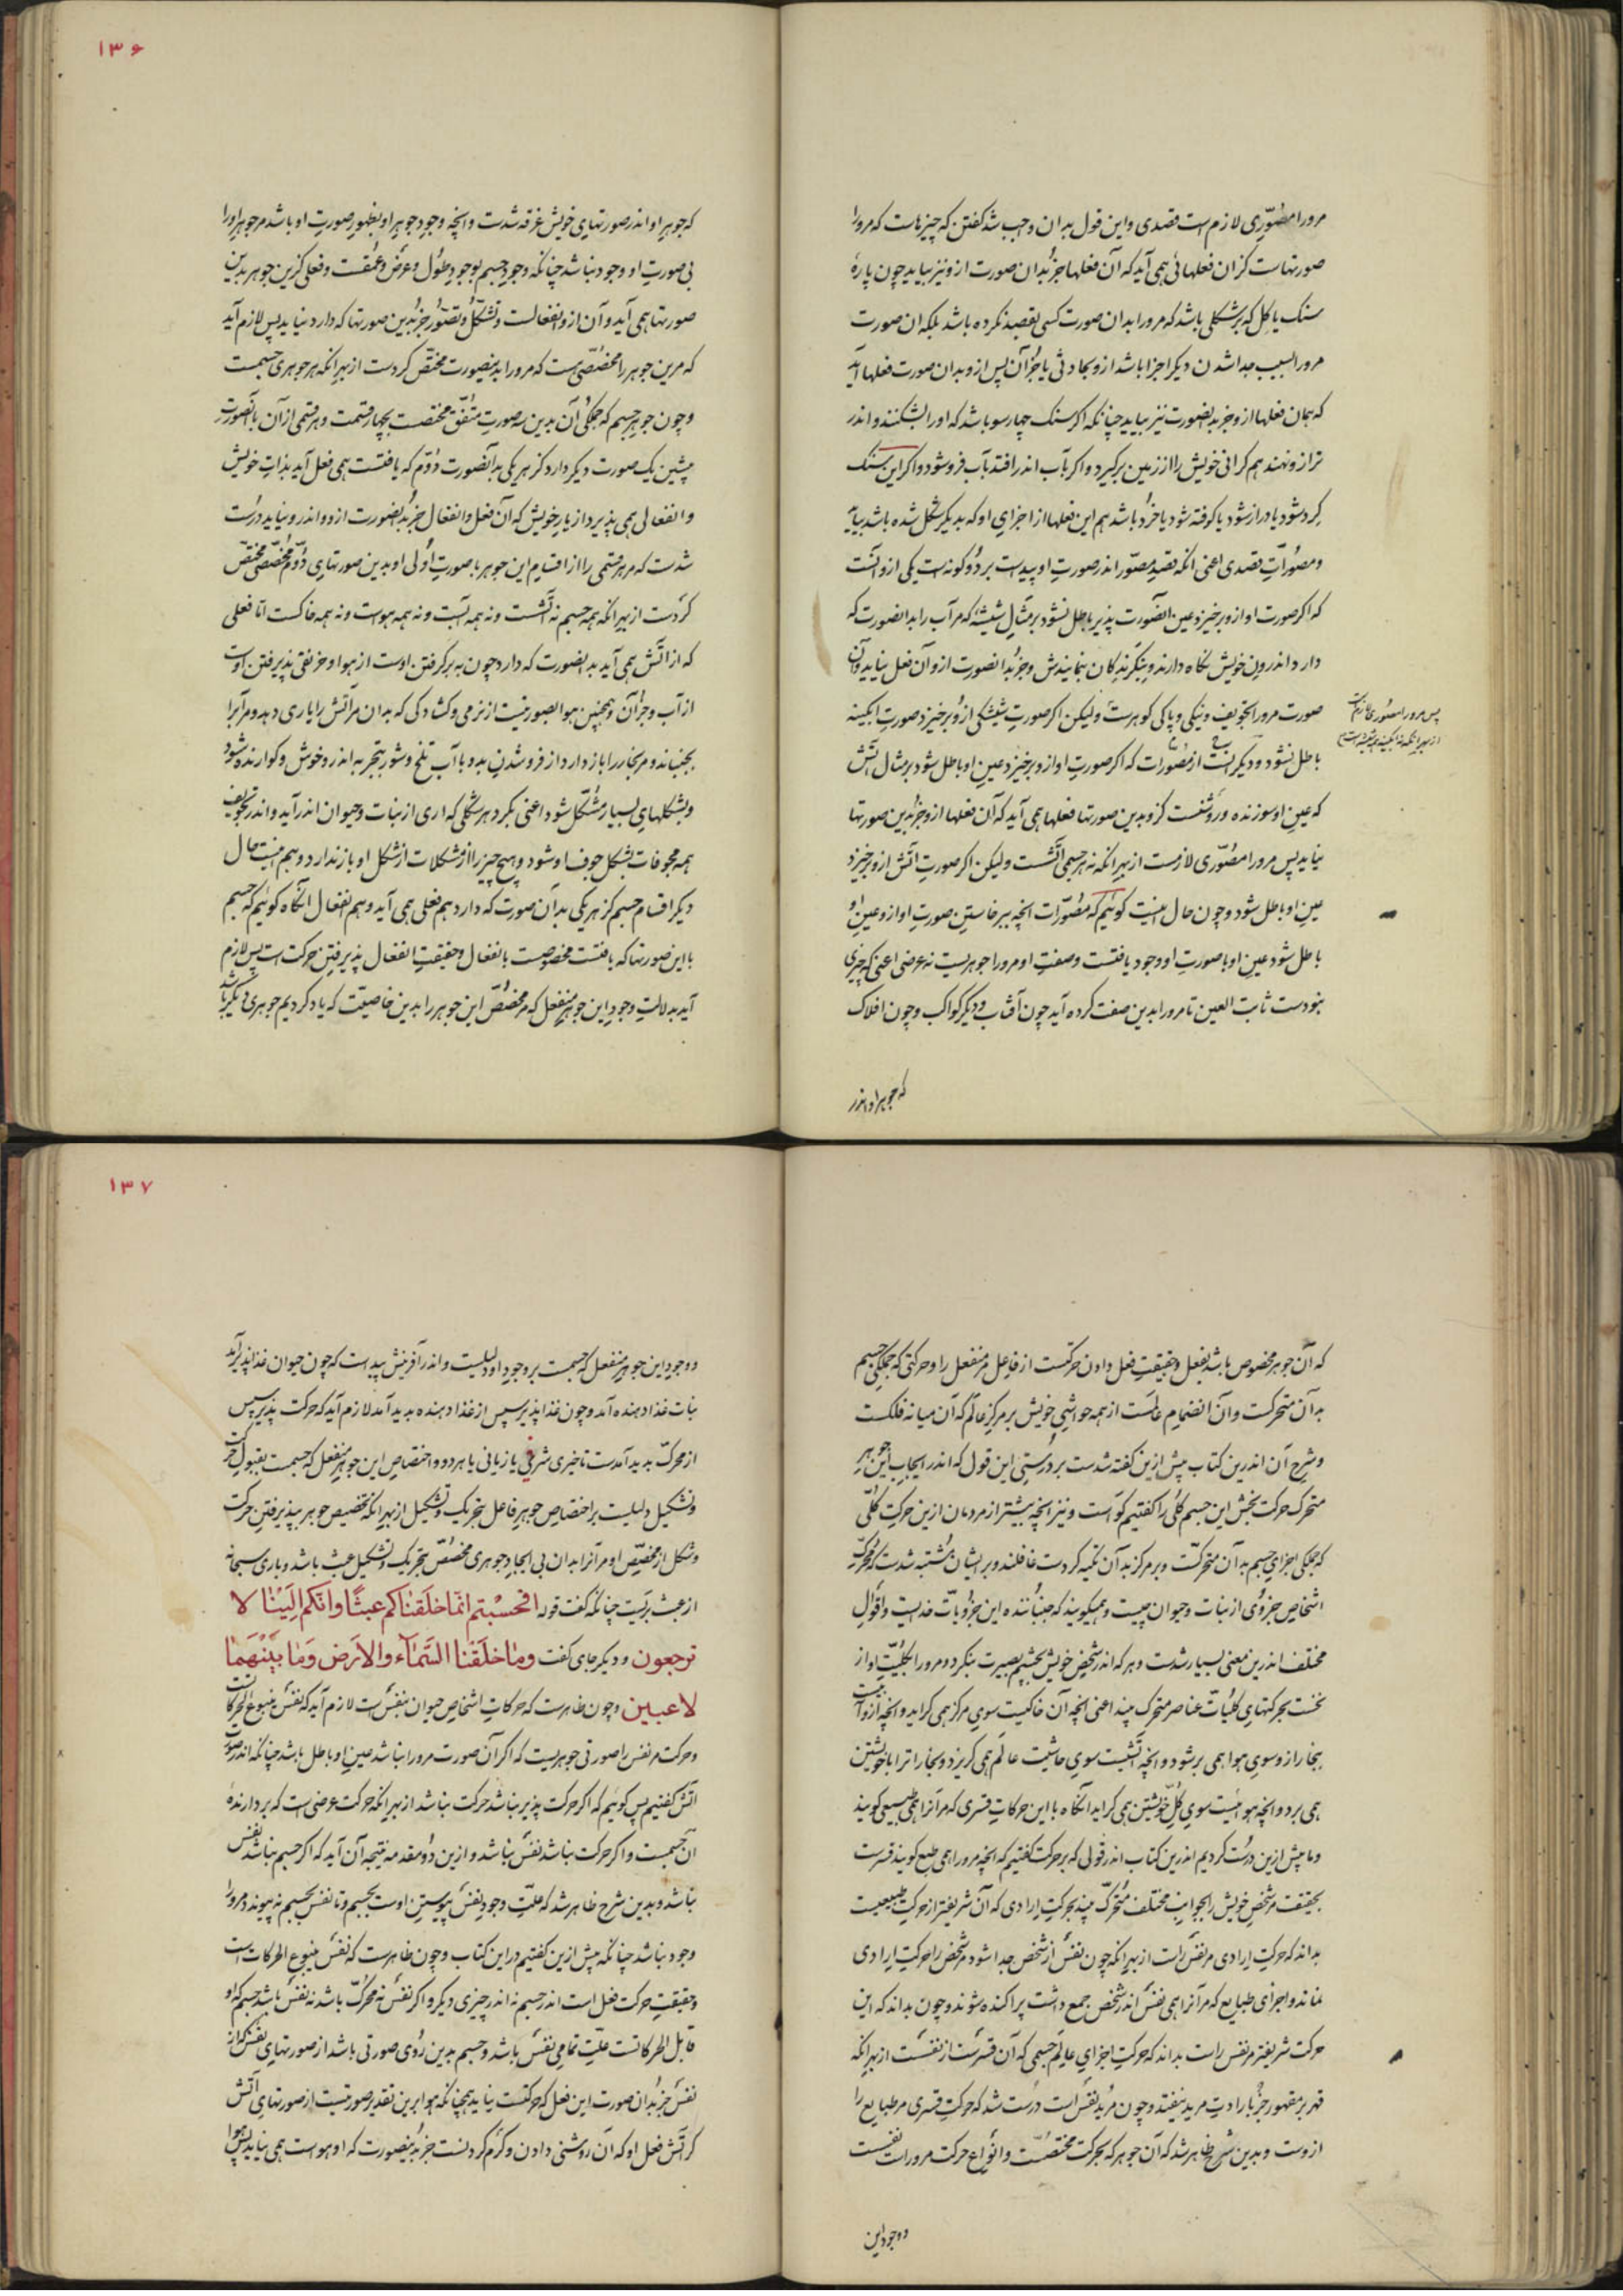 مرورا مصوّری لازم است قصدی واین قول بدان واجب شد کفتن که چیزهاست که مرورا
صورتهاست کزان فعلهائی همی آید که آن فعلها جز بدان صورت ازو نیز بیاید چون پارۀ
سنک یا کل که بر شکلی باشد که مرورا بدان صورت کسی بقصد نکرده باشد بلکه ان صورت
مرورا بسبب جدا شدن دیکر اجزا باشد ازو بحادثی یا جز آن پس ازو بدان صورت فعلها آید
که همان فعلها ازو جز بدانصورت نیز بیاید چنانکه اکر سنک چهارسو باشد که اورا بشکنند و اندر
ترازو نهند هم کرانی خویش را از زمین برکیرد و اکر بآب اندر افتد بآب فرو شود و اکر این سنک
کرد شود یا دراز شود یا کوفته شود یا خرد باشد هم این فعلها از اجزای او که بدیکر شکل شده باشد بیاید
ومصوّرات قصدی اعنی انکه قصد مصوّر اندر صورت او پیداست بر دو کونه است یکی ازو آنست
که اکر صورت او ازو برخیزد عین آنصورت پذیر باطل نشود بر مثال شیشۀ که مر آب را بدانصورت که
دارد اندرون خویش نکاه دارد و بنکرندکان بنمایندش و جز بدانصورت ازو آن فعل نیاید وآن
صورت مرورا تجویف و تنکی و پاکی کوهرست ولیکن اکر صورت شیشکی ازو برخیزد صورت ابکینه
پس مرورا مصوّری لازمست
از بهر انکه نه ابکینه همه شیشه است
باطل نشود و دیکر آنست از مصوّرات که اکر صورت او ازو برخیزد عین او باطل شود بر مثال آتش
که عین او سوزنده و روشنست کزو بدین صورتها فعلها همی آید که آن فعلها ازو جز بدین صورتها
نیاید پس مرورا مصوّری لازمست از بهر انکه نه هر جسمی آتشست ولیکن اکر صورت آتش ازو برخیزد
عین او باطل شود و چون حال اینست کوئیم که مصوّرات انچه ببرخاستن صورت او ازو عین او
باطل شود عین او با صورت او وجود یافتست وصفت او مرورا جوهریست نه عرضی اعنی که چیزی
نبودست ثابت العین تا مرورا بدین صفت کرده آید چون آفتاب و دیکر کواکب و چون افلاک
که جوهر او اندر
۱۳۶
که جوهر او اندر صورتهای خویش غرقه شدست و انچه وجود جوهر او بظهور صورت او باشد مر جوهر اورا
بی صورت او وجود نباشد چنانکه وجود جسم بوجود طول و عرض و عمقست و فعلی کزین جوهر بدین
صورتها همی آید و آن ازو انفعالست و تشکّل و تصوّر جز بدین صورتها که دارد نیاید پس لازم آید
که مرین جوهر را مخصّصی است که مرورا بدینصورت مختصّ کردست از بهر انکه هر جوهری جسمست
و چون جوهر جسم که جمکی آن بدین سه صورت متّفق مختصست بچهار قسمت و هر قسمی ازان با آنصورت
پیشین یک صورت دیکر دارد کز هر یکی بدانصورت دوّم که یافتست همی فعل آید بذات خویش
و انفعالی همی پذیرد از یار خویش که آن فعل و انفعال جز بدانصورت ازو و اندرو نیاید درست
شدست که مر هر قسمی را از اقسام این جوهر با صورت اولی او بدین صورتهای دوّم مخصّصی مختصّ
کردست از بهر انکه همه جسم نه آتشست و نه همه آبست و نه همه هواست و نه همه خاکست امّا فعلی
که از آتش همی آید بدانصورت که دارد چون به برکرفتن اوست از هوا و خرنقی پذیرفتن اوست
از آب و جز آن و همچنین هوا بصورتیست از نرمی و کشادکی که بدان مر آتش را یاری دهد و مر آبرا
بجنباند و مر بخار را باز دارد از فرو شدن بدو با آب تلخ و شور بتجربه اندرو خوش و کوارنده شود
وبشکلهای بسیار مشکّل شود اعنی بکردد هر شکلی که اری از نبات و حیوان اندر آید و اندر تجویف
همه مجوفات بشکل جوف او شود و هیچ چیز را از مشکلات از شکل او باز ندارد و هم اینست حال
دیکر اقسام جسم کز هر یکی بدان صورت که دارد هم فعلی همی آید و هم انفعال آنکاه کوئیم که جسم
با این صورتها که یافتست مخصوصست بانفعال و حقیقت انفعال پذیرفتن حرکت است پس لازم
آید بدلالت وجود این جوهر منفعل که مر مخصّص این جوهر را بدین خاصیّت که یاد کردیم جوهری دیکر باشد
که آن جوهر مخصوص باشد بفعل و حقیقت فعل دادن حرکتست از فاعل مر منفعل را و حرکتی که جملکی جسم
بدان متحرکست و آن انضمام عالمست از همه حواشی خویش بر مرکز عالم که آن میانه فلکست
و شرح آن اندرین کتاب پیش ازین کفته شدست بر درستی این قول که اندر ایجاب این جوهر
متحرک حرکت بخش این جسم کلّی را کفتیم کواست و نیز انچه بیشتر از مردمان ازین حرکت کلّی
که جملکی اجزای جسم بدان متحرکست و بر مرکز بدان تکیه کردست غافلند و بر ایشان مشتبه شدست که محرّک
اشخاص جزوی از نبات و حیوان چیست و همیکویند که جنباننده این جزویات خدایست و اقوال
مختلف اندرین معنی بسیار شدست و هر که اندر شخص خویش بچشم بصیرت بنکرد و مرورا بکلیّت او از
نخست بحرکتهای کلیّات عناصر متحرک بیند اعنی انچه آن خاکیست سوی مرکز همی کراید و انچه ازو آبیست
بخار ازو سوی هوا همی برشود و انچه آتشیست سوی حاشیت عالم همی کریزد و بخارات را با خویشتن
همی برد و انچه هوائیست سوی کلّ خویشتن همی کراید آنکاه با این حرکات قسری که مر آنرا همی طبیعی کویند
و ما پیش ازین درست کردیم اندرین کتاب اندر قولی که بر حرکت کفتیم که انچه مرورا همی طبع کویند قسرست
بحقیقت مر شخص خویش را بجوانب مختلف متحرّک بیند بحرکت ارادی که آن شریفتر از حرکت طبیعیست
بداند که حرکت ارادی مر نفس راست از بهر انکه چون نفس از شخص جدا شود مر شخص را حرکت ارادی
نماند و اجزای طبایع که مر آنرا همی نفس اندر شخص جمع داشت پراکنده شوند و چون بداند که این
حرکت شریفتر مر نفس راست بداند که حرکت اجزای عالم جسمی که آن قسرست از نفسست از بهر انکه
قهر بر مقهور جز بارادت مرید نیفتد و چون مرید نفس است درست شد که حرکت قسری مر طبایع را
ازوست و بدین شرح ظاهر شد که آن جوهر که بحرکت مختصّست و انواع حرکت مروراست نفسست
و وجود این
۱۳۷
و وجود این جوهر منفعل که جسمست بر وجود او دلیلست و اندر آفرینش پیداست که چون حیوان غذا پذیر آمد
نبات غذا دهنده آمد و چون غذا پذیر سپس از غذا دهنده پدید آمد لازم آید که حرکت پذیر سپس
از محرّک پدید آمدست تاخیری شرفی یا زمانی یا هر دو و اختصاص این جوهر منفعل که جسمست بقبول حرکت
و تشکیل دلیلست بر اختصاص جوهر فاعل بتحریک و تشکیل از بهر انکه تخصیص جوهر بپذیرفتن حرکت
و شکل از مخصّص او مر آنرا بدان بی ایجاد جوهری مخصّص بتحریک و تشکیل عبث باشد و باری سبحانه
از عبث بریست چنانکه کفت قوله افحسبتم انّما خلقناکم عبثًا وانّکم الینا لا
ترجعون و دیکر جای کفت وما خلقنا السّمآء والارض وما بینهما
لاعبین و چون ظاهرست که حرکات اشخاص حیوان بنفس است لازم آید که نفس ینبوع الحرکاتست
و حرکت مر نفس را صورتی جوهریست که اکر آن صورت مرورا نباشد عین او باطل باشد چنانکه اندر صورت
آتش کفتیم پس کوئیم که اکر حرکت پذیر نباشد حرکت نباشد از بهر انکه حرکت عرضی است که بردارندۀ
آن جسمست و اکر حرکت نباشد نفس نباشد و ازین دو مقدمه نتیجه آن آید که اکر جسم نباشد نفس
نباشد و بدین شرح ظاهر شد که علّت وجود نفس پیوستن اوست بجسم و تا نفس بجسم نه پیوندد مرورا
وجود نباشد چنانکه پیش ازین کفتیم در این کتاب و چون ظاهرست که نفس ینبوع الحرکات است
و حقیقت حرکت فعل است اندر جسم نه اندر چیزی دیکر و اکر نفس نه محرّک باشد نه نفس باشد جسم که او
قابل الحرکاتست علّت تمامی نفس باشد و جسم بدین روی صورتی باشد از صورتهای نفس کز
نفس جز بدان صورت این فعل که حرکتست نیاید همچنانکه هوا برین تقدیر صورتیست از صورتهای آتش
کز آتش فعل او که آن روشنی دادن و کرم کردنست جز بدینصورت که او هواست همی نیاید پس هوا